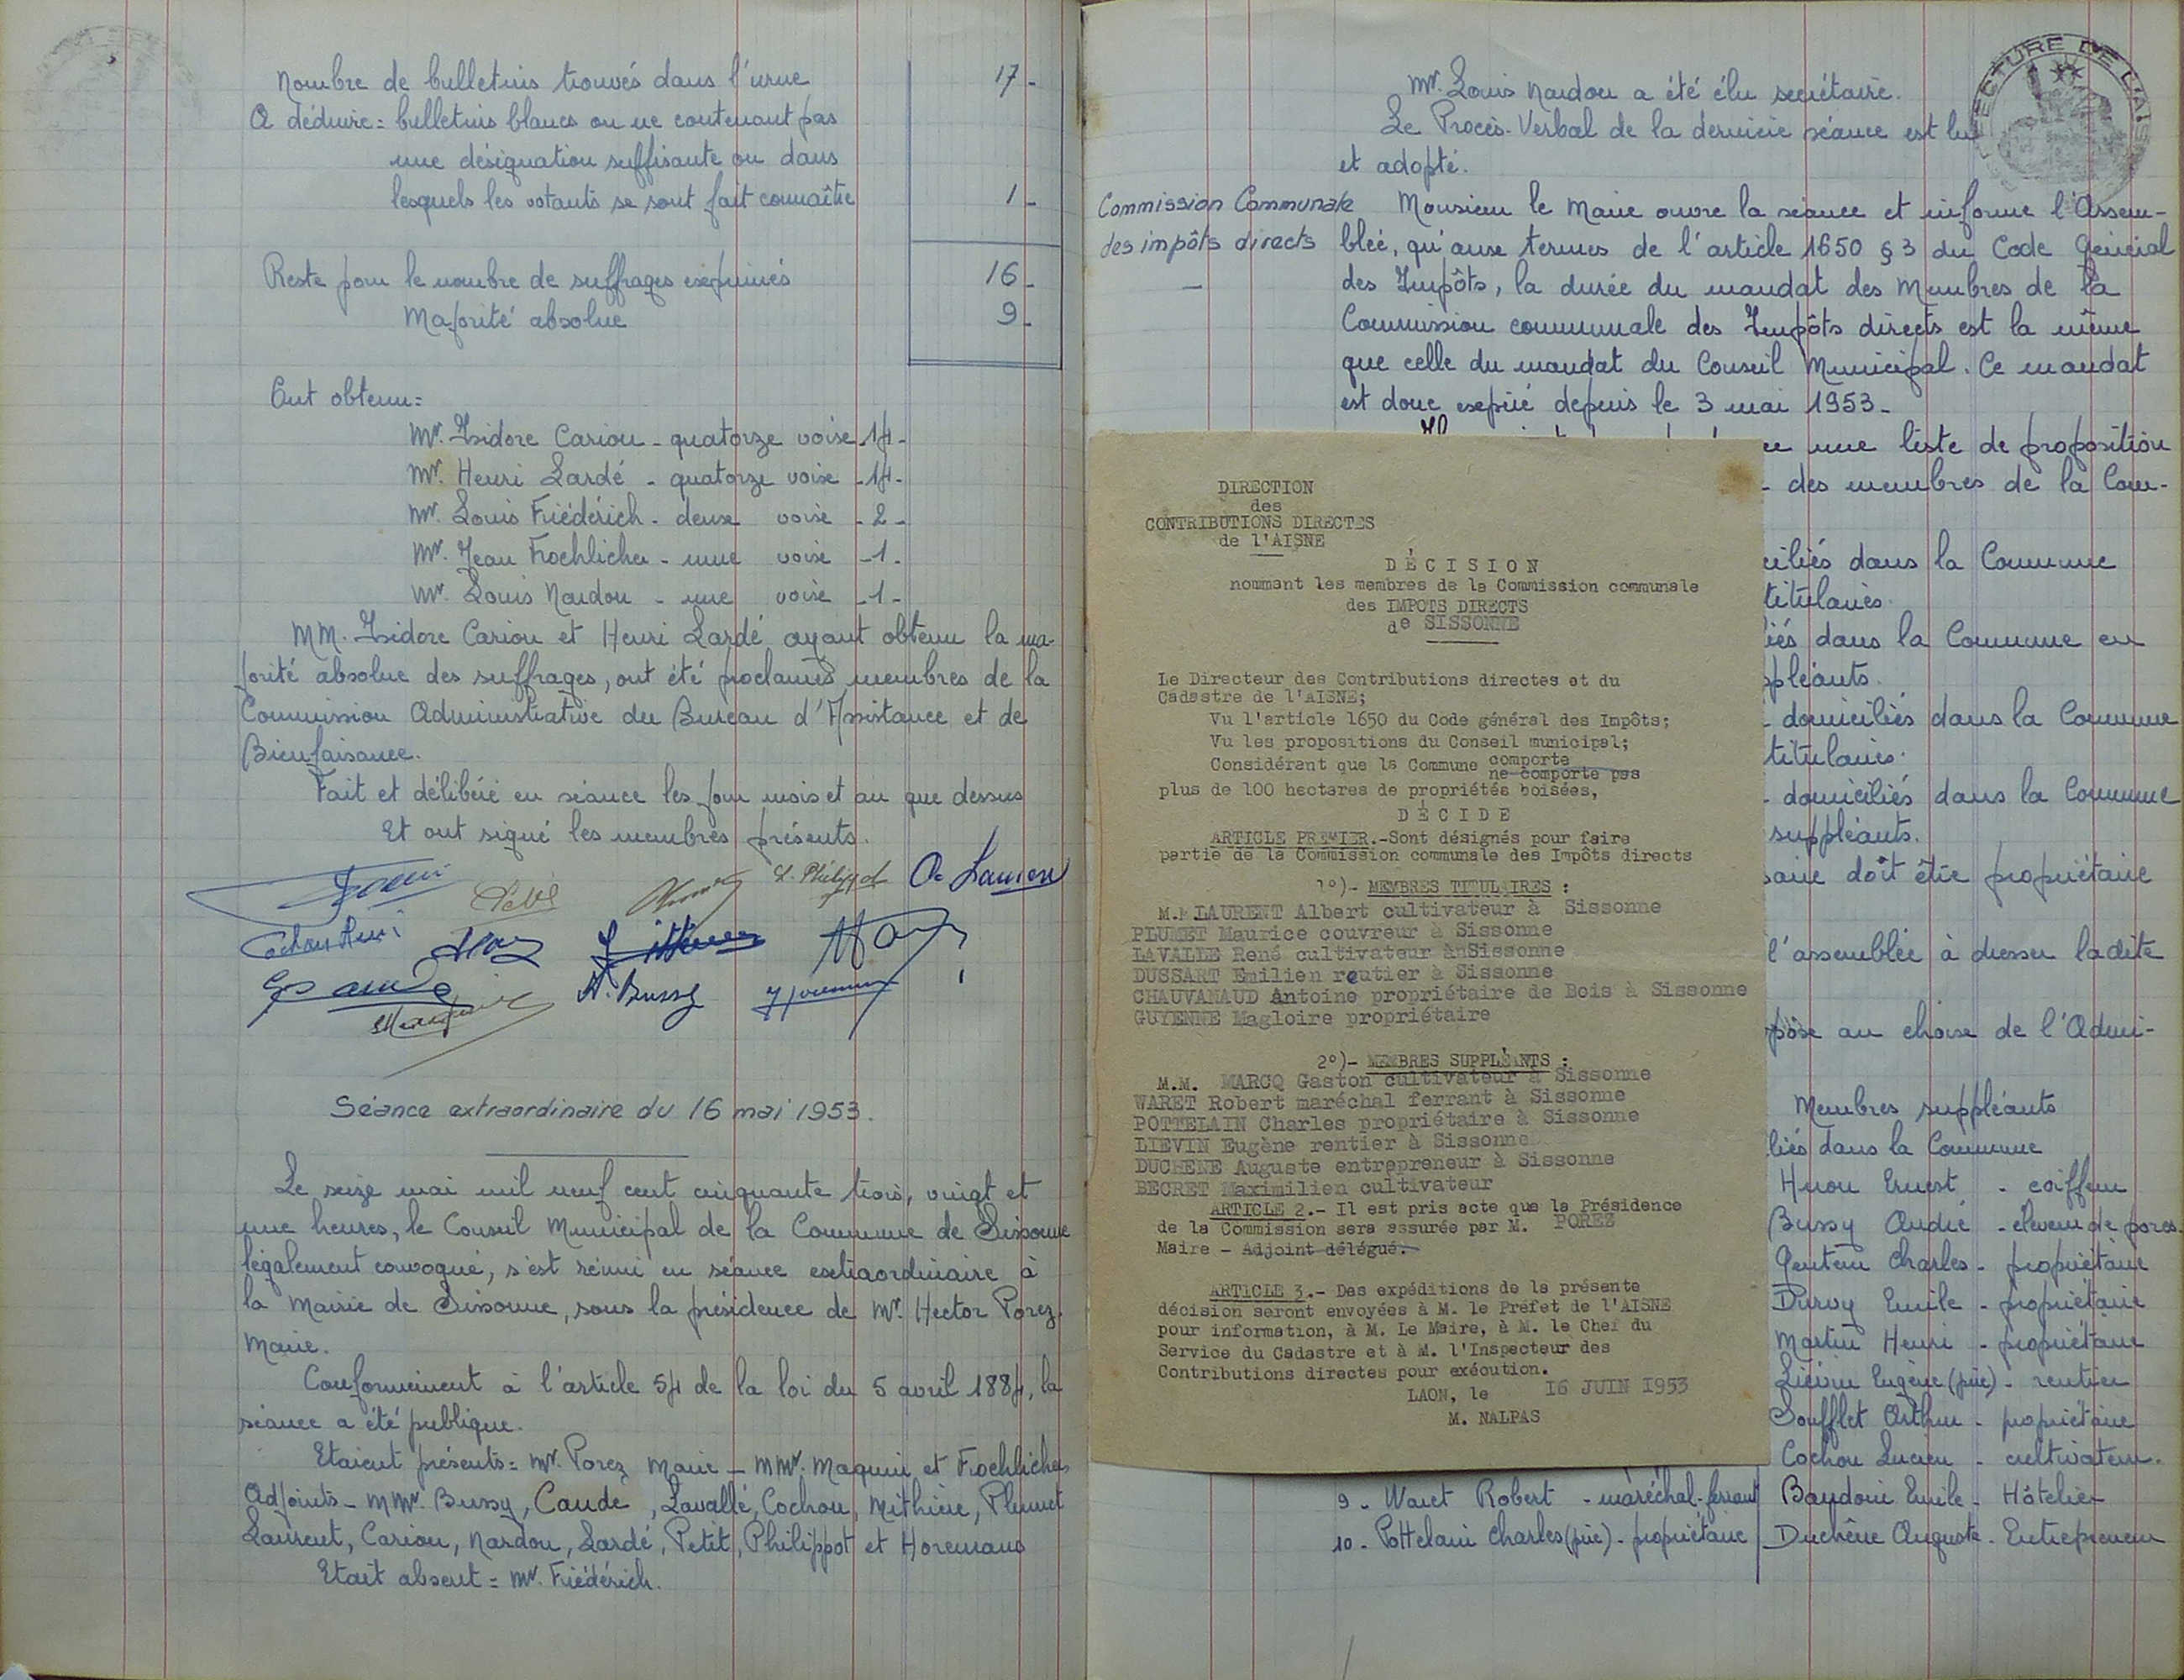 Nombre de bulletins trouvés dans l'urne 17-
A déduire = bulletins blancs ou ne contenant pas
une désignation suffisante ou dans
lesquels les votants se sont fait connaître 1-
Reste pour le nombre de suffrages exprimés 16-
Majorité absolue 9-
Ont obtenu =
Mr. Isidore Cariou - quatorze voix - 14 -
Mr. Henri Lardé - quatorze voix - 14 -
Mr. Louis Friédérich - deux voix - 2 -
Mr. Jean Froehlicher - une voix - 1 -
Mr. Louis Nardou - une voix - 1 -
MM. Isidore Cariou et Henri Lardé ayant obtenu la ma-
jorité absolue des suffrages, ont été proclamés membres de la
Commission Administrative du Bureau d'Assistance et de
Bienfaisance.
Fait et délibéré en séance les jour mois et an que dessus
Et ont signé les membres présents.
L. Philippot
A. Bussy
Séance extraordinaire du 16 mai 1953.
Le seize mai mil neuf cent cinquante trois, vingt et
une heures, le Conseil Municipal de la Commune de Sissonne
légalement convoqué, s'est réuni en séance extraordinaire à
la Mairie de Sissonne, sous la présidence de Mr. Hector Porez.
Maire.
Conformément à l'article 54 de la loi du 5 avril 1884, la
séance a été publique.
Etaient présents = Mr. Porez Maire - MMr. Maquin et Froehlicher
Adjoints - MMr. Bussy, Caude, Lavallé, Cochon, Mithière, Plumet
Laurent, Cariou, Nardou, Lardé, Petit, Philippot et Horemans
Etait absent = Mr. Friédérich.
Mr. Louis Nardou a été élu secrétaire.
Le Procès-Verbal de la dernière séance est lu
et adopté.
Commission Communale
des impôts directs
-
Monsieur le Maire ouvre la séance et informe l'Assem-
blée, qu'aux termes de l'article 1650 § 3 du Code Général
des Impôts, la durée du mandat des Membres de la
Commission communale des Impôts directs est la même
que celle du mandat du Conseil Municipal. Ce mandat
est donc expiré depuis le 3 mai 1953-
une liste de proposition
- des membres de la Com-
ciliés dans la Commune
titulaires.
liés dans la Commune en
ppléants.
- domiciliés dans la Commune
titulaires.
- domiciliés dans la Commune
suppléants.
saire doit être propriétaire
l'assemblée à dresser ladite
pose au choix de l'Admi-
Membres suppléants
liés dans la Commune
Huron Ernest - coiffeur
Bussy André - éleveur de porcs
Genteur Charles - propriétaire
Duruy Emile - propriétaire
Martin Henri - propriétaire
Liévin Eugène (père) - rentier
Soufflet Arthur - propriétaire
Cochon Lucien - cultivateur.
9 - Waret Robert - maréchal-ferrant Baudoin Emile - Hôtelier
10 - Pottelain Charles (père) - propriétaire Duchêne Auguste - Entrepreneur
DIRECTION
des
CONTRIBUTIONS DIRECTES
de l'AISNE
DÉCISION
nommant les membres de la Commission communale
des IMPOTS DIRECTS
de SISSONNE
Le Directeur des Contributions directes et du
Cadastre de l'AISNE;
Vu l'article 1650 du Code général des Impôts;
Vu les propositions du Conseil municipal;
Considérant que la Commune comporte
ne comporte pas
plus de 100 hectares de propriétés boisées,
DÉCIDE
ARTICLE PREMIER.-Sont désignés pour faire
partie de la Commission communale des Impôts directs
1°)- MEMBRES TITULAIRES :
M.M LAURENT Albert cultivateur à Sissonne
PLUMET Maurice couvreur à Sissonne
LAVALLE René cultivateur ànSissonne
DUSSART Emilien reutier à Sissonne
CHAUVANAUD Antoine propriétaire de Bois à Sissonne
GUYENNE Magloire propriétaire
2°)- MEMBRES SUPPLÉANTS :
M.M. MARCQ Gaston cultivateur à Sissonne
WARET Robert maréchal ferrant à Sissonne
POTTELAIN Charles propriétaire à Sissonne
LIEVIN Eugène rentier à Sissonne
DUCHENE Auguste entrepreneur à Sissonne
BECRET Maximilien cultivateur
ARTICLE 2.- Il est pris acte que la Présidence
de la Commission sera assurée par M. POREZ
Maire - Adjoint délégué.
ARTICLE 3.- Des expéditions de la présente
décision seront envoyées à M. le Préfet de l'AISNE
pour information, à M. Le Maire, à M. le Chef du
Service du Cadastre et à M. l'Inspecteur des
Contributions directes pour exécution.
LAON, le 16 JUIN 1953
M. NALPAS